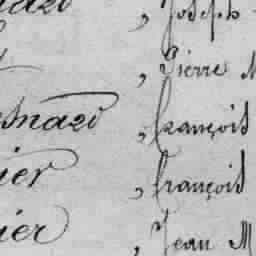 , Joseph
, Pierre M
, françois
ier , françois
ier , Jean M